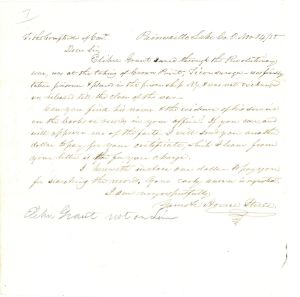 To the Comptroller of Conn. Painesville Lake Co. O. Nov 14/55
Dear Sir
Elihu Grant served through the Revolutionary
war, was at the taking of Crown Point, Ticonderoga
taken prisoner & placed in the prison ship N.Y. & was not
released till the close of the war.
Can you find his name & the evidence of his service
on the books or records in your office? If you can and
will approve of the facts I will send you another
dollar to pay for your certificate, which I learn from
your letter is the fee you charge.
I herewith inclose one dollar to pay you
for searching the records. Your early answer is requested
I am very respectfully
Yours &c Horace Steele
Elihu Grant not on Line